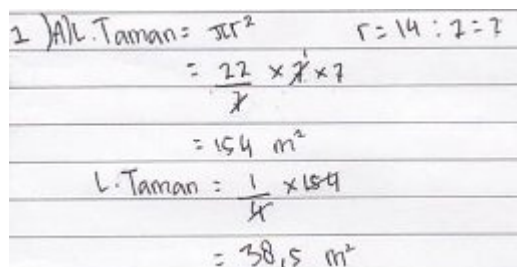 1) A) L. Taman = πr² r = 14 : 2 = 7
= 22/7 × 7 × 7
= 154 m²
L. Taman = 1/4 × 154
= 38,5 m²